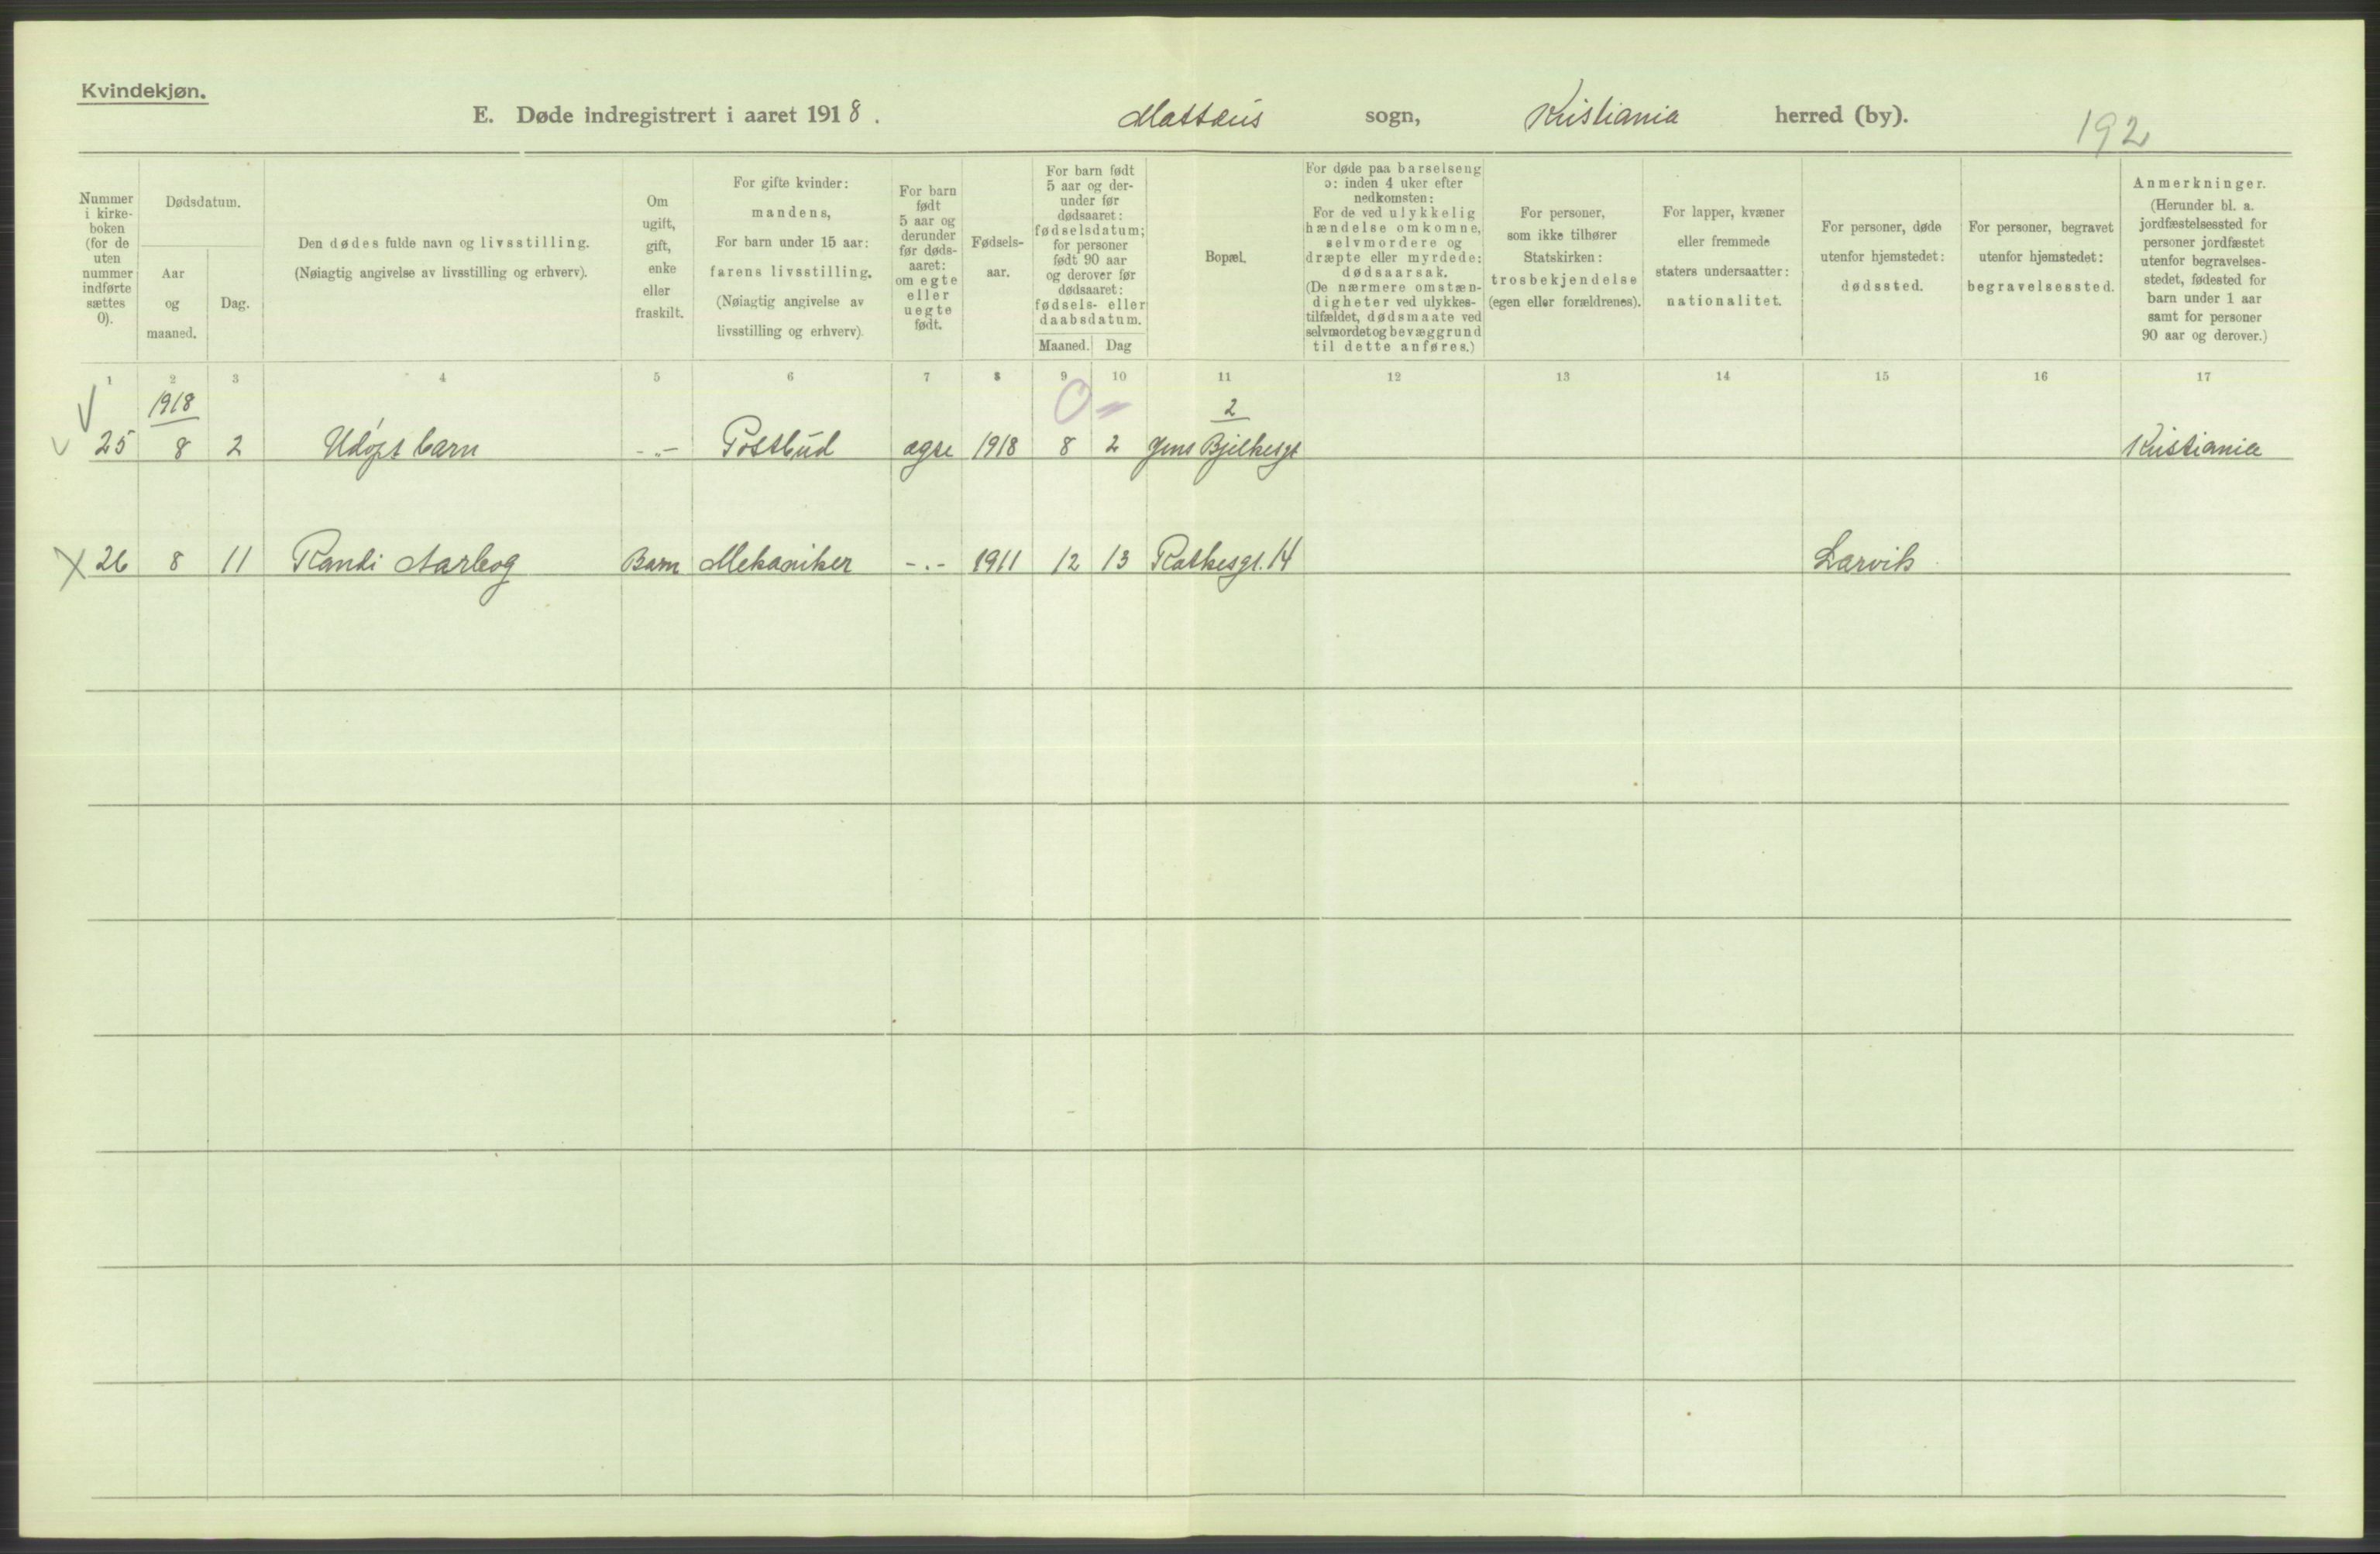 Kvindekjøn.
E. Døde indregistrert i aaret 1918. Mattæus sogn, Kristiania herred (by). 192
Nummer
i kirke-
boken
(for de
uten
nummer
indførte
sættes
0).
Dødsdatum.
Aar
og
maaned.
Dag.
Den dødes fulde navn og livsstilling.
(Nøiagtig angivelse av livsstilling og erhverv).
Om
ugift,
gift,
enke
eller
fraskilt.
For gifte kvinder:
mandens,
For barn under 15 aar:
farens livsstilling.
(Nøiagtig angivelse av
livsstilling og erhverv).
For barn
født
5 aar og
derunder
før døds-
aaret:
om egte
eller
uegte
født.
Fødsels-
aar.
For barn født
5 aar og der-
under før
dødsaaret:
fødselsdatum;
for personer
født 90 aar
og derover før
dødsaaret:
fødsels- eller
daabsdatum.
Maaned. Dag
Bopæl.
For døde paa barselseng
ɔ: inden 4 uker efter
nedkomsten:
For de ved ulykkelig
hændelse omkomne,
selvmordere og
dræpte eller myrdede:
dødsaarsak.
(De nærmere omstæn-
digheter ved ulykkes-
tilfældet, dødsmaate ved
selvmordet og bevæggrund
til dette anføres.)
For personer,
som ikke tilhører
Statskirken:
trosbekjendelse
(egen eller forældrenes).
For lapper, kvæner
eller fremmede
staters undersaatter:
nationalitet.
For personer, døde
utenfor hjemstedet:
dødssted.
For personer, begravet
utenfor hjemstedet:
begravelsessted.
Anmerkninger.
(Herunder bl. a.
jordfæstelsessted for
personer jordfæstet
utenfor begravelses-
stedet, fødested for
barn under 1 aar
samt for personer
90 aar og derover.)
1 2 3 4 5 6 7 8 9 10 11 12 13 14 15 16 17
1918 0 2
25 8 2 Udøpt barn -„- Postbud egte 1918 8 2 Jens Bjelkesgt Kristiania
26 8 11 Randi Aarbog Barn Mekaniker -.- 1911 12 13 Rathkesgt. 14 Larvik